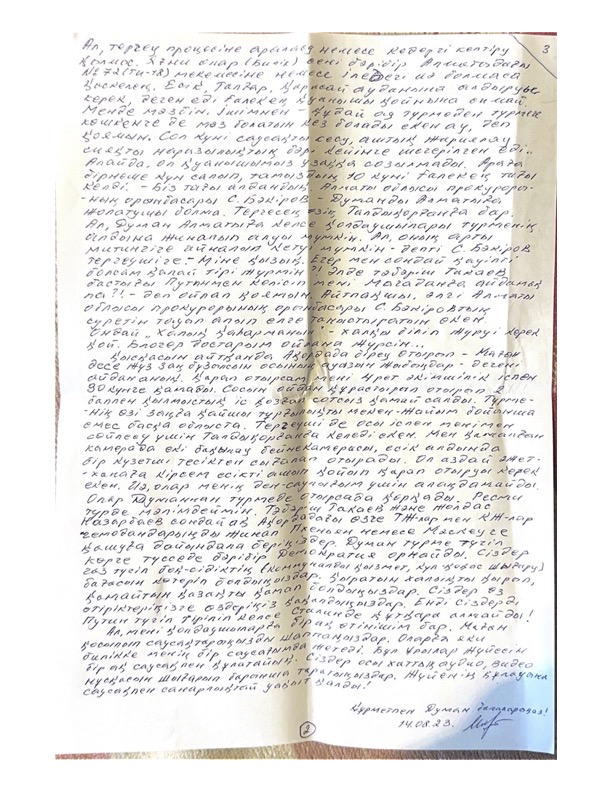 3
Ал, тергеу процесіне араласу немесе кедергі келтіру
қылмыс. Яғни олар (билік) сені бәрібір Алматыдағы
№72 (ТИ-18) мекемесіне немесе іледегі ИЗ болмаса
Қаскелең, Есік, Талғар, Қарасай ауданына алдыруы
керек, деген еді Ғалекең қуанышы қойнына сыймай.
Менде мәзбін. Ішімнен - құдай ау түрмеден түрмеге
көшкенге де мәз болатын кез болады екен ау, деп
қоямын. Сол күні саусақты кесу, аштық жариялау
сияқты наразылықтың бәрі кейінге ысерілген еді..
Алайда, ол қуанышымыз ұзаққа созылмады. Араға
бірнеше күн салып, тамыздың 10 күні Ғалекең тағы
келді. - Біз тағы алдандық. Алматы облысы прокуроры-
-ның орынбасары С. Бәкіров - Думанды Алматыға
жолатушы болма. Тергесең өзің Талдықорғанда бар.
Ал, Думан Алматыға келсе қолдаушылары түрменің
алдына жиналып алуы мүмкін. Ал, оның арты
митингіге айналып кетуі мүмкін - депті С. Бәкіров
тергеушіге. - Міне қызық. Егер мен сондай қауіпті
болсам қалай тірі жүрмін?! Әлде Тәбәріш Тақаев
бастығы Путинмен келісіп мені Магаданға айдамақ
па?! - деп ойлап қоямын. Айтпақшы, әлгі Алматы
облысы прокурорының орынбасары С. Бәкіровтың
суретін тауап алып елге таныстыратын екен
ондай „Халық қаһарманын" - халқы біліп жүруі керек
қой. Блогер достарым ойлана жүрсін...
Қысқасын айтқанда Ақордада біреу отырып - Маған
десе жүз заң бұзсын осының аузын жабыңдар - дегені
айдан анық. Қарап отырсам мені әурет әкімшілік іспен
30 күнге қамады. Сосын ойдан құрастырып отырып 2
баппен қылмыстық іс қозғап сотсыз қамай салды. Түрме-
-нің өзі заңға қайшы тұрғылықты мекен-жайым бойынша
емес басқа облыста. Тергеуші де осы іспен менімен
сөйлесу үшін Талдықорғанға келеді екен. Мен қамалған
камерада екі бақылау бейнекамерасы, есік алдында
бір күзетші тесіктен сығалап отырады. Ол аздай әжет-
-ханаға кірсем есікті ашып қойып қарап отыруы керек
екен. Иә, олар менің ден-саулығым үшін алаңдамайды.
Олар Думаннан түрмеде отырсада қорқады. Ресми
түрде мәлімдеймін. Тәбәріш Тақаев және жолдас
Назарбаев сондай ақ Ақордадағы өзге ТЖ-лар мен КЖ-лар
чемодандарыңды жинап Пхеньян немесе Мәскеуге
қашуға дайындала беріңіздер. Думан түрме түгіл
көрге түсседе бәрібір Демократия орнайды. Сіздер
газ түгіл боқ-сідіктің (коммуналды қызмет, күл-қоқыс шығару)
бағасын көтеріп болдыңыздар. Қыратын халықты қырып,
қамайтын қазақты қамап болдыңыздар. Сіздер өз
өтіріктеріңізге өздеріңіз қақалдыңыздар. Енді сіздерді
Путин түгіл тіріліп келсе Сталинде құтқара алмайды!
Ал, мені қолдаушыларға бірақ өтінішім бар. Маған
қосылып саусақтарыңызды шаппаңыздар. Оларға яки
билікке менің бір саусағымда жетеді. Бұл ұрылар жүйесін
бір ақ саусақпен құлатайық. Сіздер осы хаттың аудио, видео
нұсқасын шығарып барынша таратыңыздар. Жүйенің құлауына
саусақпен санарлықтай уақыт қалды!
Құрметпен Думан балаларыңыз!
14.08.23.
2